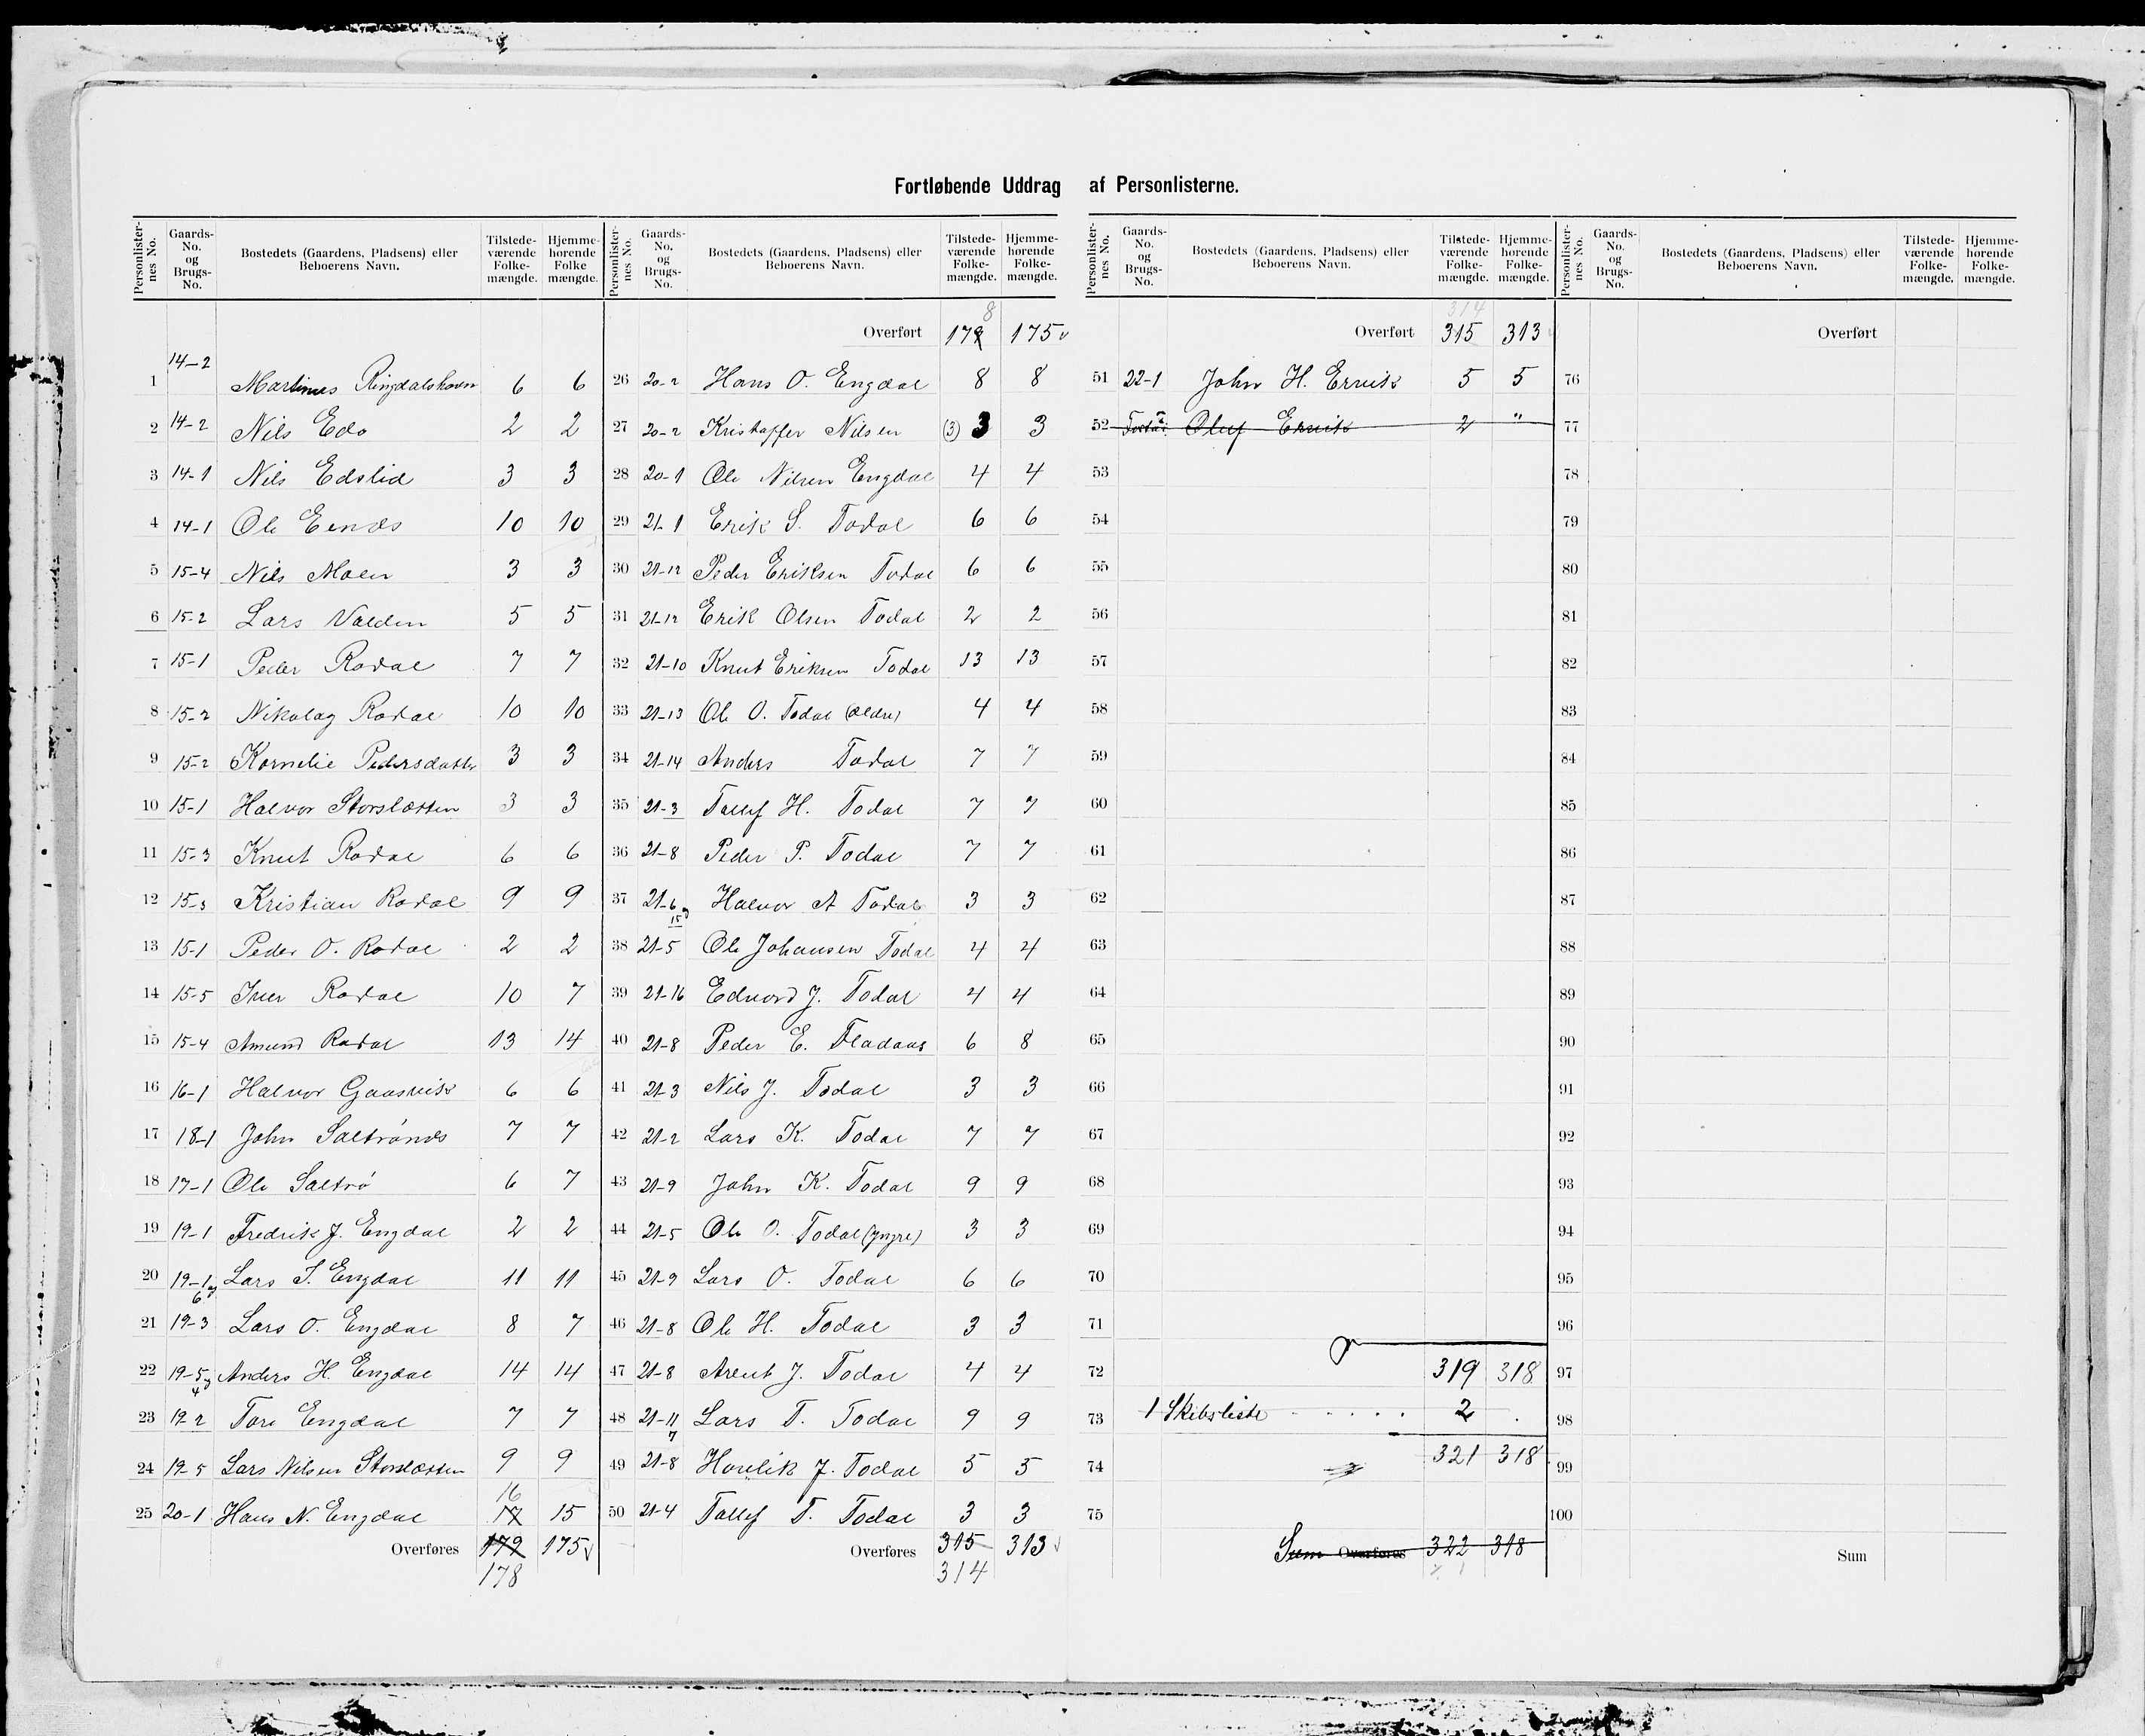 Fortløbende Uddrag af Personlisterne.
Personlisternes No. Gaards-No. og Brugs-No. Bostedets (Gaardens, Pladsens) eller Beboerens Navn. Tilstedeværende Folkemængde. Hjemmehørende Folkemængde.
1 14-2 Martinus Ringdalshavn 6 6
2 14-2 Nils Edo 2 2
3 14-1 Nils Edslid 3 3
4 14-1 Ole Eenæs 10 10
5 15-4 Nils Moen 3 3
6 15-2 Lars Valden 5 5
7 15-1 Peder Rodal 7 7
8 15-2 Nikolay Rodal 10 10
9 15-2 Kornelie Pedersdatter 3 3
10 15-1 Halvor Storslætten 3 3
11 15-3 Knut Rodal 6 6
12 15-3 Kristian Rodal 9 9
13 15-1 Peder O. Rodal 2 2
14 15-5 Iver Rodal 10 7
15 15-4 Amund Rodal 13 14
16 16-1 Halvor Gaasvik 6 6
17 18-1 John Saltrønæs 7 7
18 17-1 Ole Saltrø 6 7
19 19-1 Fredrik J. Engdal 2 2
20 19-1 og 6 Lars S. Engdal 11 11
21 19-3 Lars O. Engdal 8 7
22 19-5 og 4 Anders H. Engdal 14 14
23 19-2 Tore Engdal 7 7
24 19-5 Lars Nilsen Storslætten 9 9
25 20-1 Hans N. Engdal 17 16 15
Overføres 179 175
178
Overført 179 8 175
26 20-2 Hans O. Engdal 8 8
27 20-2 Kristoffer Nilsen (3) 3 3
28 20-1 Ole Nilsen Engdal 4 4
29 21-1 Erik S. Todal 6 6
30 21-12 Peder Eriksen Todal 6 6
31 21-12 Erik Olsen Todal 2 2
32 21-10 Knut Eriksen Todal 13 13
33 21-13 Ole O. Todal (ældre) 4 4
34 21-14 Anders Todal 7 7
35 21-3 Tollef H. Todal 7 7
36 21-8 Peder P. Todal 7 7
37 21-6 og 15 Halvor A Todal 3 3
38 21-5 Ole Johansen Todal 4 4
39 21-16 Edvard J. Todal 4 4
40 21-8 Peder E. Fladaas 6 8
41 21-3 Nils J. Todal 3 3
42 21-2 Lars K. Todal 7 7
43 21-9 John K. Todal 9 9
44 21-5 Ole O. Todal (yngre) 3 3
45 21-9 Lars O. Todal 6 6
46 21-8 Ole H. Todal 3 3
47 21-8 Arent J. Todal 4 4
48 21-11 7 Lars T. Todal 9 9
49 21-8 J. Todal 5 5
50 21-4 Tollef T. Todal 3 3
Overføres 315 313
314
Personlisternes No. Gaards-No. og Brugs-No. Bostedets (Gaardens, Pladsens) eller Beboerens Navn. Tilstedeværende Folkemængde. Hjemmehørende Folkemængde.
314
Overført 315 313
51 22-1 John H. Ervik 5 5
52 Oluf Ervik 2 "
53
54
55
56
57
58
59
60
61
62
63
64
65
66
67
68
69
70
71
72 319 318
73 1 Skibsliste . . . . . 2 .
74 321 318
75
Sum Overføres 322 318
Overført
76
77
78
79
80
81
82
83
84
85
86
87
88
89
90
91
92
93
94
95
96
97
98
99
100
Sum